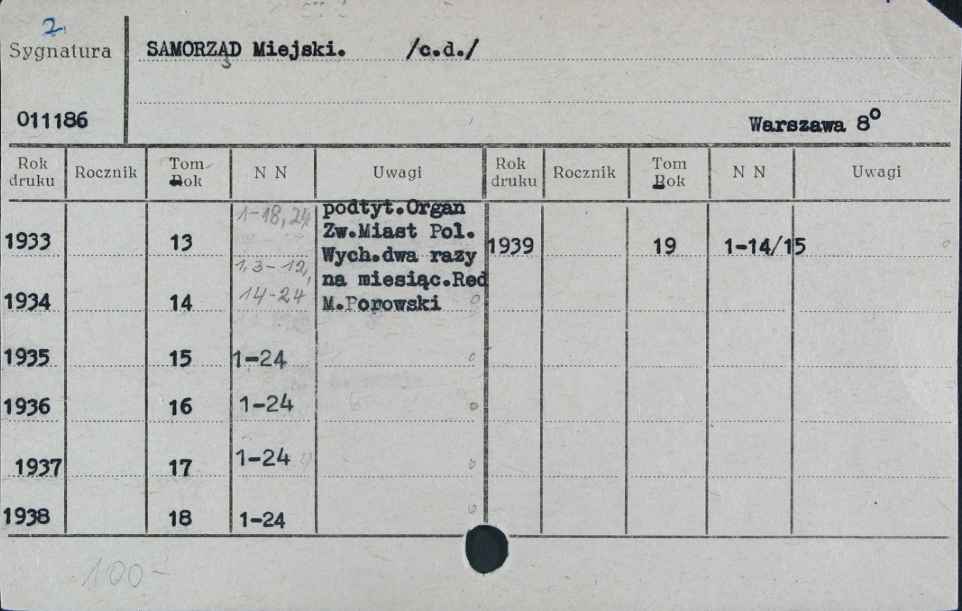 2.
Sygnatura
SAMORZĄD Miejski. /c.d./
011186
Warszawa 8°
Rok druku Rocznik Tom Rok N N Uwagi Rok druku Rocznik Tom Rok N N Uwagi
1-18, 24 podtyt.Organ
1933 13 Zw.Miast Pol. 1939 19 1-14/15
1, 3-12, Wych.dwa razy
14-24 na miesiąc.Red
1934 14 M.Porowski
1935 15 1-24
1936 16 1-24
1937 17 1-24
1938 18 1-24
100-